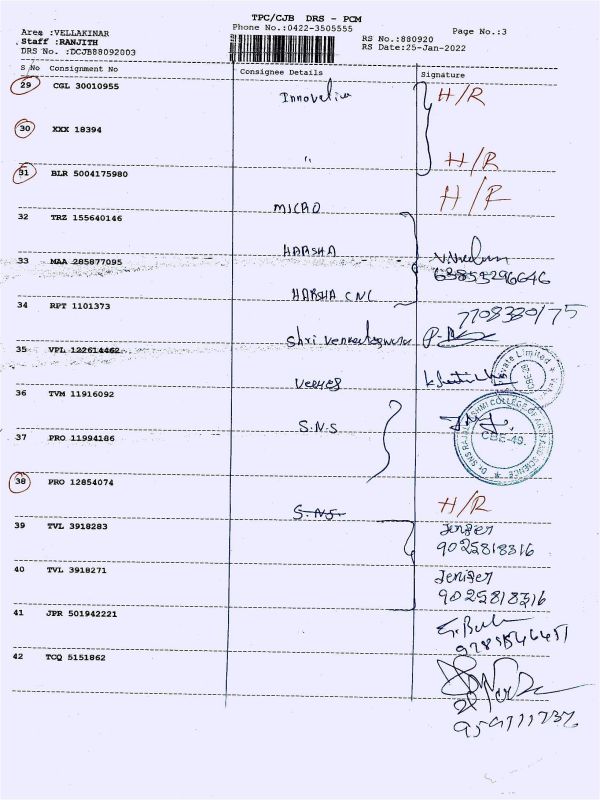 TPC/CJB DRS - PCM
Area :VELLAKINAR Phone No.:0422-3505555 Page No.:3
Staff :RANJITH RS No:880920
DRS No.:DCJB88092003 RS Date:25-Jan-2022
S No Consignment No Consignee Details Signature
29 CGL 30010955 H/R
30 XXX 18394 " H/R
31 BLR 5004175980 MICRO H/R
32 TRZ 155640146 HARSHA
33 MAA 285877095 HARSHA CNC 63853296646
34 RPT 1101373 Shri 7708330175
35 VPL 122614462
36 TVM 11916092 S.N.S
37 PRO 11994186
38 PRO 12854074 S.N.S. H/R
39 TVL 3918283 Jenifer
9025818316
40 TVL 3918271 Jenifer
9025818316
41 JPR 501942221
42 TCQ 5151862
Private Limited
Dr. SNS RAJALAKSHMI COLLEGE OF ARTS AND SCIENCE
CBE-49.